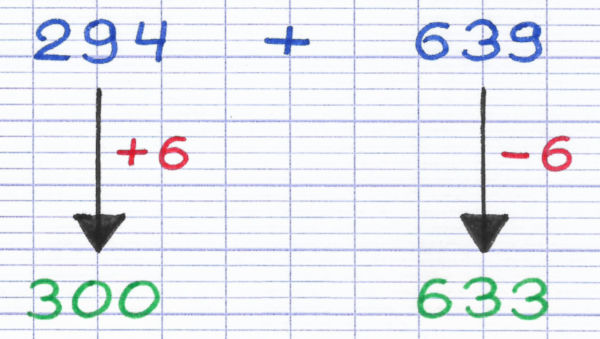 294 + 639
+6 -6
300 633